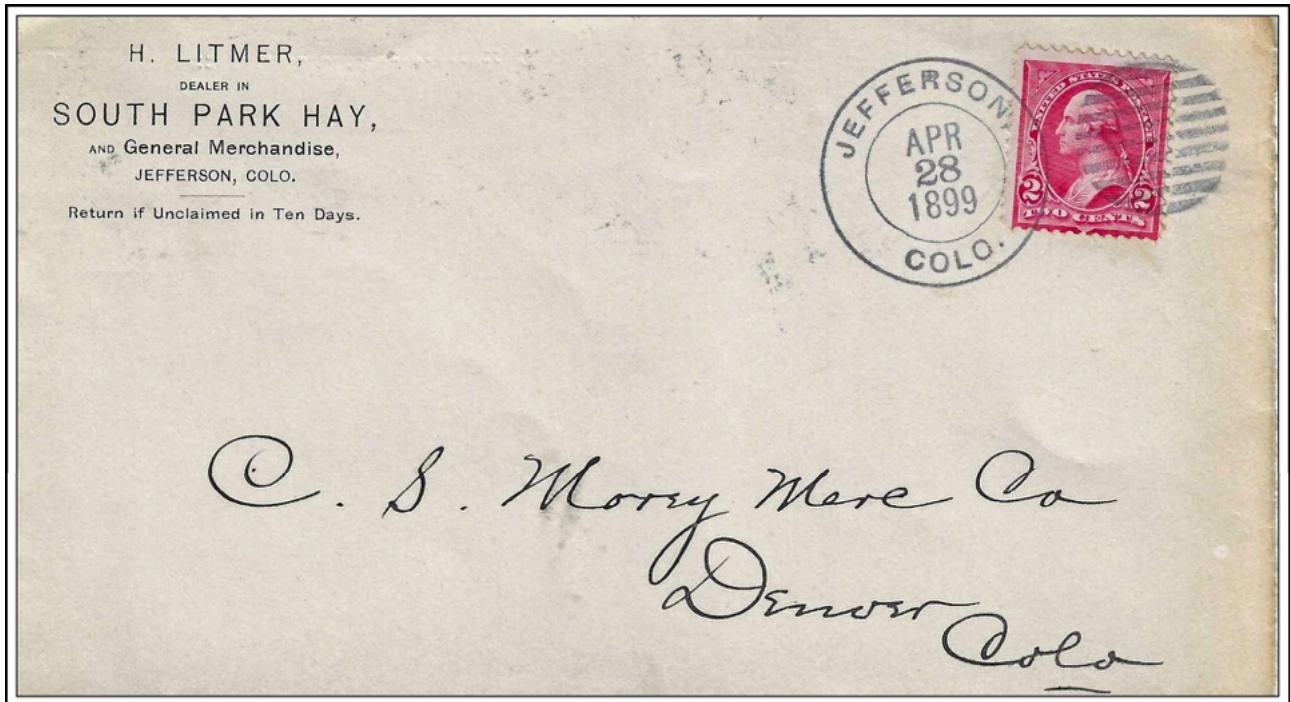 H. LITMER,
DEALER IN
SOUTH PARK HAY,
AND General Merchandise,
JEFFERSON, COLO.
Return if Unclaimed in Ten Days.
JEFFERSON,
APR
28
1899
COLO.
UNITED STATES POSTAGE
2 2
TWO CENTS
C. S. Morey Merc Co
Denver
Colo